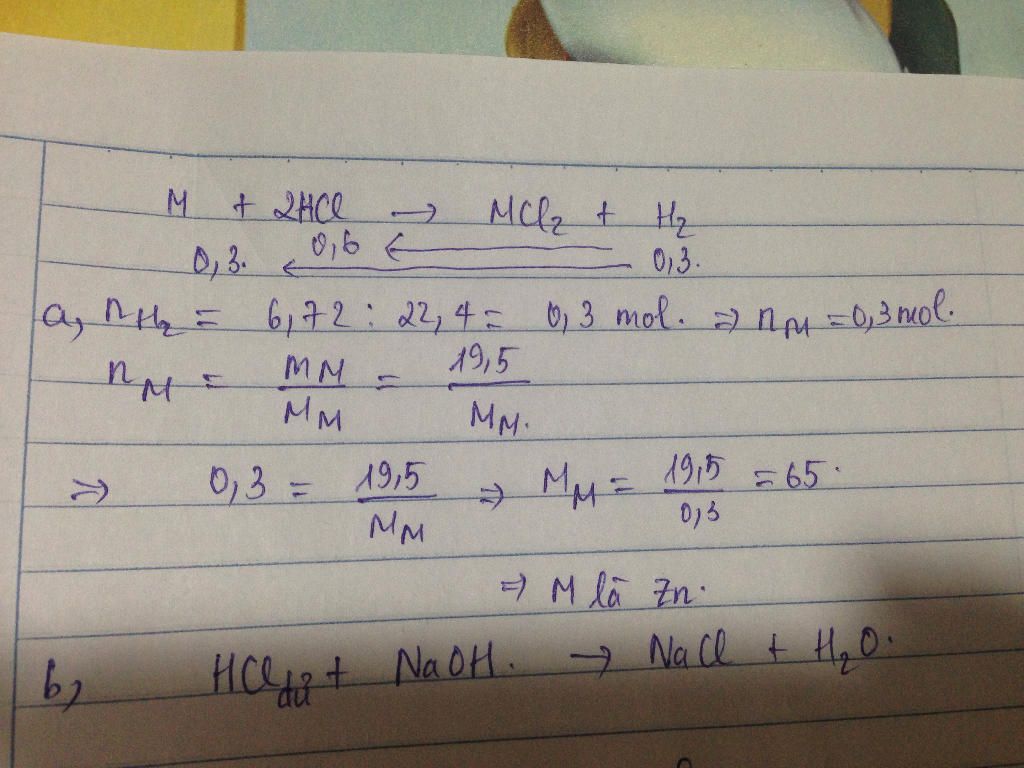 M + 2HCl → MCl₂ + H₂
0,6 ←
0,3. ← 0,3.
a, nH₂ = 6,72 : 22,4 = 0,3 mol. ⇒ nM = 0,3 mol.
nM = mM/MM = 19,5/MM.
⇒ 0,3 = 19,5/MM ⇒ MM = 19,5/0,3 = 65.
⇒ M là Zn.
b, HCl dư + NaOH. → NaCl + H₂O.